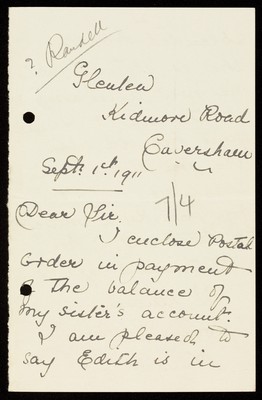 ? Randell
Glenlea
Kidmore Road
Caversham
Sept. 1st. 1911
7/4
Dear Sir.
I enclose Postal
Order in payment
of the balance of
my sister's account.
I am pleased to
say Edith is in